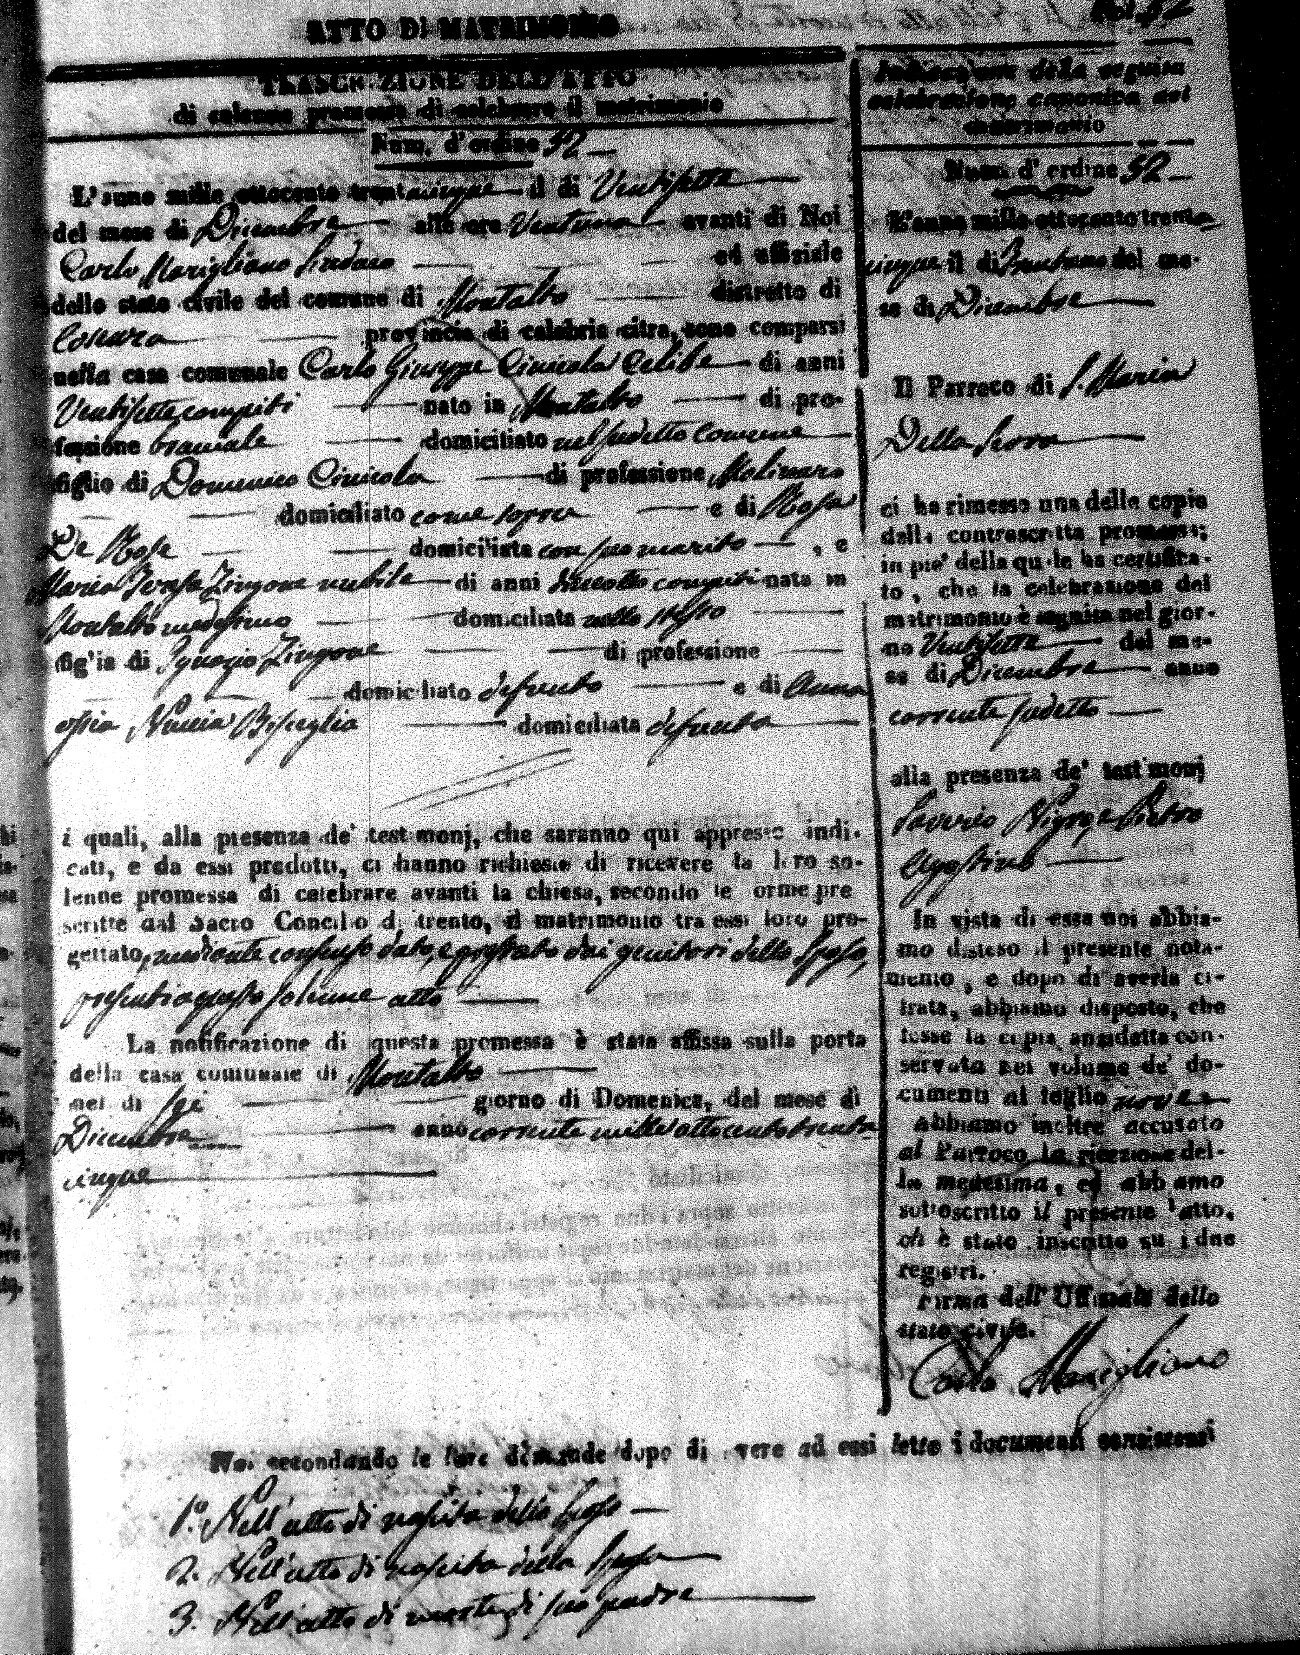 ATTO DI MATRIMONIO
TRASCRIZIONE DELL'ATTO
di solenne promessa di celebrare il matrimonio
Num. d'ordine 52
L'anno mille ottocento trentacinque il di Ventisette
del mese di Dicembre alle ore Ventuna avanti di Noi
Carlo Marigliano Sindaco ed uffiziale
dello stato civile del comune di Montalto distretto di
Cosenza provincia di calabria citra, sono comparsi
nella casa comunale Carlo Giuseppe Cinicola Celibe di anni
Ventisette compiti nato in Montalto di pro-
fessione bracciale domiciliato nel sudetto Comune
figlio di Domenico Cinicola di professione Molinaro
domiciliato come sopra e di Rosa
De Rose domiciliata con suo marito , e
Maria Teresa Zingone nubile di anni diecotto compiti nata in
Montalto medesimo domiciliata nello stesso
figlia di Ignazio Zingone di professione
domiciliato defunto e di Anna
ossia Nunzia Bisceglia domiciliata defunta
i quali, alla presenza de' testimonj, che saranno qui appresso indi-
cati, e da essi predotti, ci hanno richiesto di ricevere la loro so-
lenne promessa di celebrare avanti la chiesa, secondo le orme pre
scritte dal Sacro Concilio di trento, il matrimonio tra essi loro pro-
gettato, mediante consenso dato, e prestato dai genitori dello Sposo,
presenti a questo solenne atto
La notificazione di questa promessa è stata affissa sulla porta
della casa comunale di Montalto
nel di Sei giorno di Domenica, del mese di
Dicembre anno corrente mille ottocento trenta
cinque
Noi secondando le loro dimande dopo di avere ad essi letto i documenti consistenti
1.º Nell'atto di nascita dello Sposo
2. Nell'atto di nascita della Sposa
3. Nell'atto di morte di suo padre
Indicazione della seguita
celebrazione canonica del
matrimonio
Num. d'ordine 52
L'anno mille ottocento trenta
cinque il di Trentuno del me-
se di Dicembre
Il Parroco di S. Maria
Della Serra
ci ha rimesso una delle copie
della controscritta promessa;
in piè della quale ha certifica-
to, che la celebrazione del
matrimonio è seguita nel gior-
no Ventisette del me-
se di Dicembre anno
corrente sudetto
alla presenza de' testimonj
Saverio Nigro, e Pietro
Agostino
In vista di essa noi abbia-
mo disteso il presente nota-
mento, e dopo di averla ci-
frata, abbiamo disposto, che
fosse la copia anzidetta con-
servata nel volume de' do-
cumenti al foglio nove
abbiamo inoltre accusato
al Parroco la ricezione del-
la medesima, ed abbiamo
sottoscritto il presente atto,
ch è stato inscritto su i due
registri.
Firma dell'Uffiziale dello
stato civile.
Carlo Marigliano